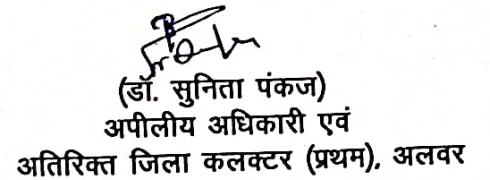 (डॉ. सुनिता पंकज)
अपीलीय अधिकारी एवं
अतिरिक्त जिला कलक्टर (प्रथम), अलवर